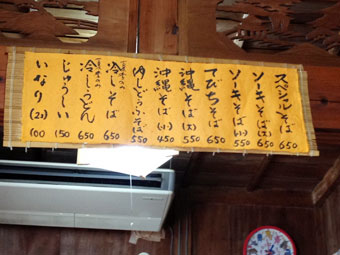 スペシャルそば 650
ソーキそば(大) 650
ソーキそば(小) 550
てびちそば 650
沖縄そば(大) 550
沖縄そば(小) 450
ゆしどうふそば 550
冷しそば 650
冷しうどん 650
じゅうしい 150
いなり(2コ) 100